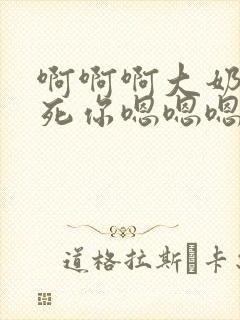 啊啊啊大奶
死你嗯嗯嗯
道格拉斯·卡